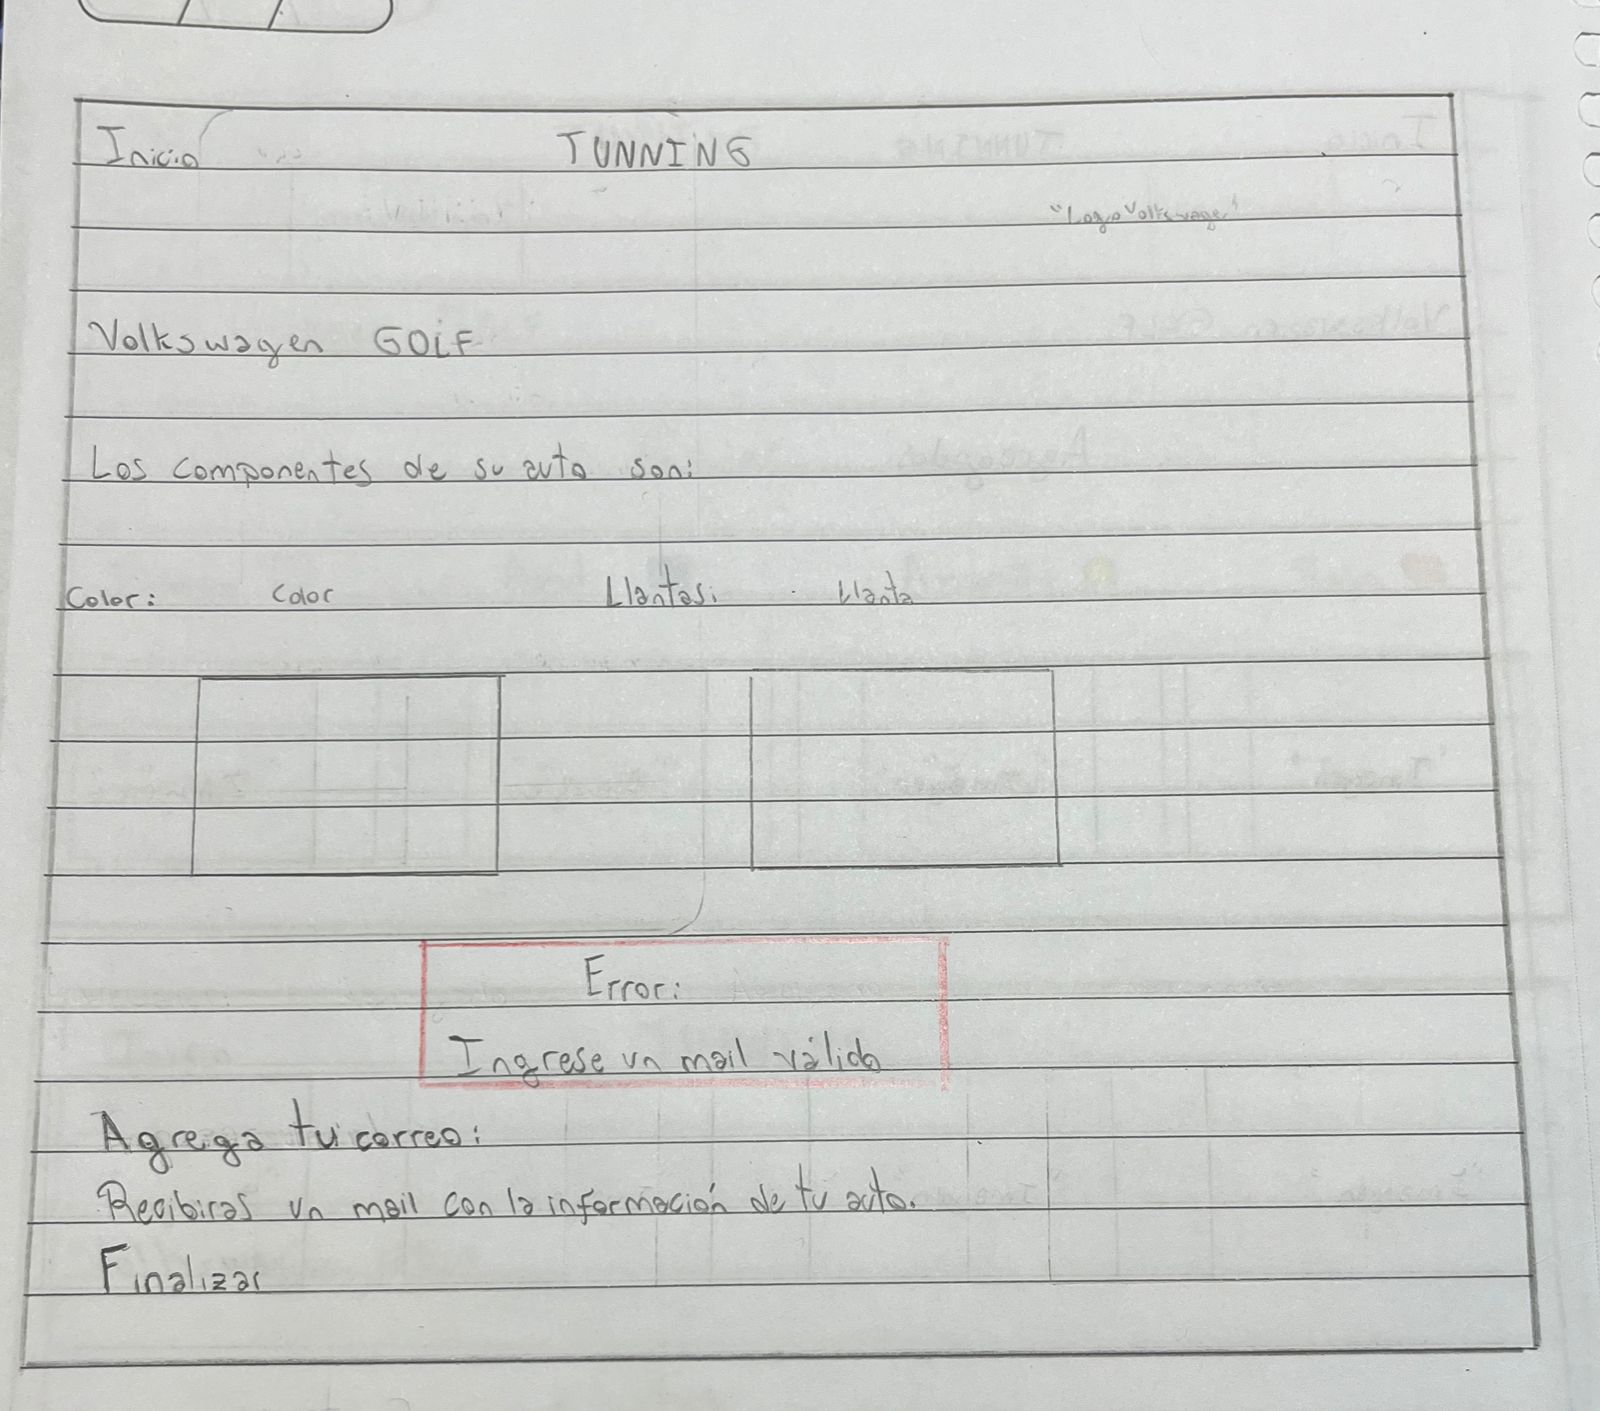 Inicio TUNNING
"Logo Volkswage"
Volkswagen GOLF
Los componentes de su auto son:
Color: Color Llantas: Llanta
Error:
Ingrese un mail válido
Agrega tu correo:
Recibiras un mail con la información de tu auto.
Finalizar